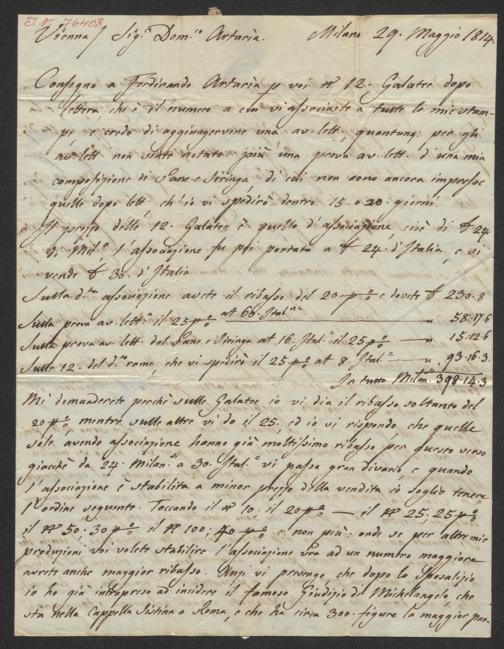 E. N. 76408
Vienna / Sig.r Dom.co Artaria. Milano 29. Maggio 1814.
Consegno a Ferdinando Artaria p voi n.o 12. Galatee dopo
lettera che è il numero a cui vi associaste a tutte le mie stam-
pe e credo di aggiungervene una av. lett. quantunq: per gli
av. lett. non siate notato più una prova av. lett. d'una mia
composizione di Pane e Siringa di cui non sono ancora impresse
quelle dopo lett. ch'io vi spedirò dentro 15. o 20. giorni
Il prezzo delle 12. Galatee è quello d'associazione cioè di 24
di Mil.o l'associazione fu poi portata a 24. d'Italia, e si
vende 30. d'Italia
Sulla d.ta associazione avete il ribasso del 20 p% e dovete 230.8
Sulla prova av. lett.a il 25 p% at 60. Ital.ne " 58.17.6
Sulla prova av. lett. del Pane e Siringa at 16. Ital.e il 25 p% " 15.12.6
Sulle 12. del d.o rame, che vi spedirò il 25 p% at 8. Ital.e " 93.16.3
In tutto Milan.e 398.14.3
Mi domanderete perché sulle Galatee io vi dia il ribasso soltanto del
20 p% mentre sulle altre vi do il 25. ed io vi rispondo che quelle
sole avendo associazione hanno già moltissimo ribasso per questo verso
giacché da 24. Milan.i a 30. Ital.e vi passa gran divario e quando
l'associazione è stabilita a minor prezzo della vendita io soglio tenere
l'ordine seguente. Toccando il n.o 10. il 20 p% — il n.o 25, 25 p%
il n.o 50; 30 p% il n.o 100; 40 p% e non più; onde se per altre mie
produzioni voi volete stabilire l'associazione vra ad un numero maggiore
avrete anche maggior ribasso. Anzi vi prevengo, che dopo lo Sposalizio
io ho già intrapreso ad incidere il famoso Giudizio di Michelangelo che
sta nella Cappella Sistina a Roma, e che ha circa 300. figure la maggior par-